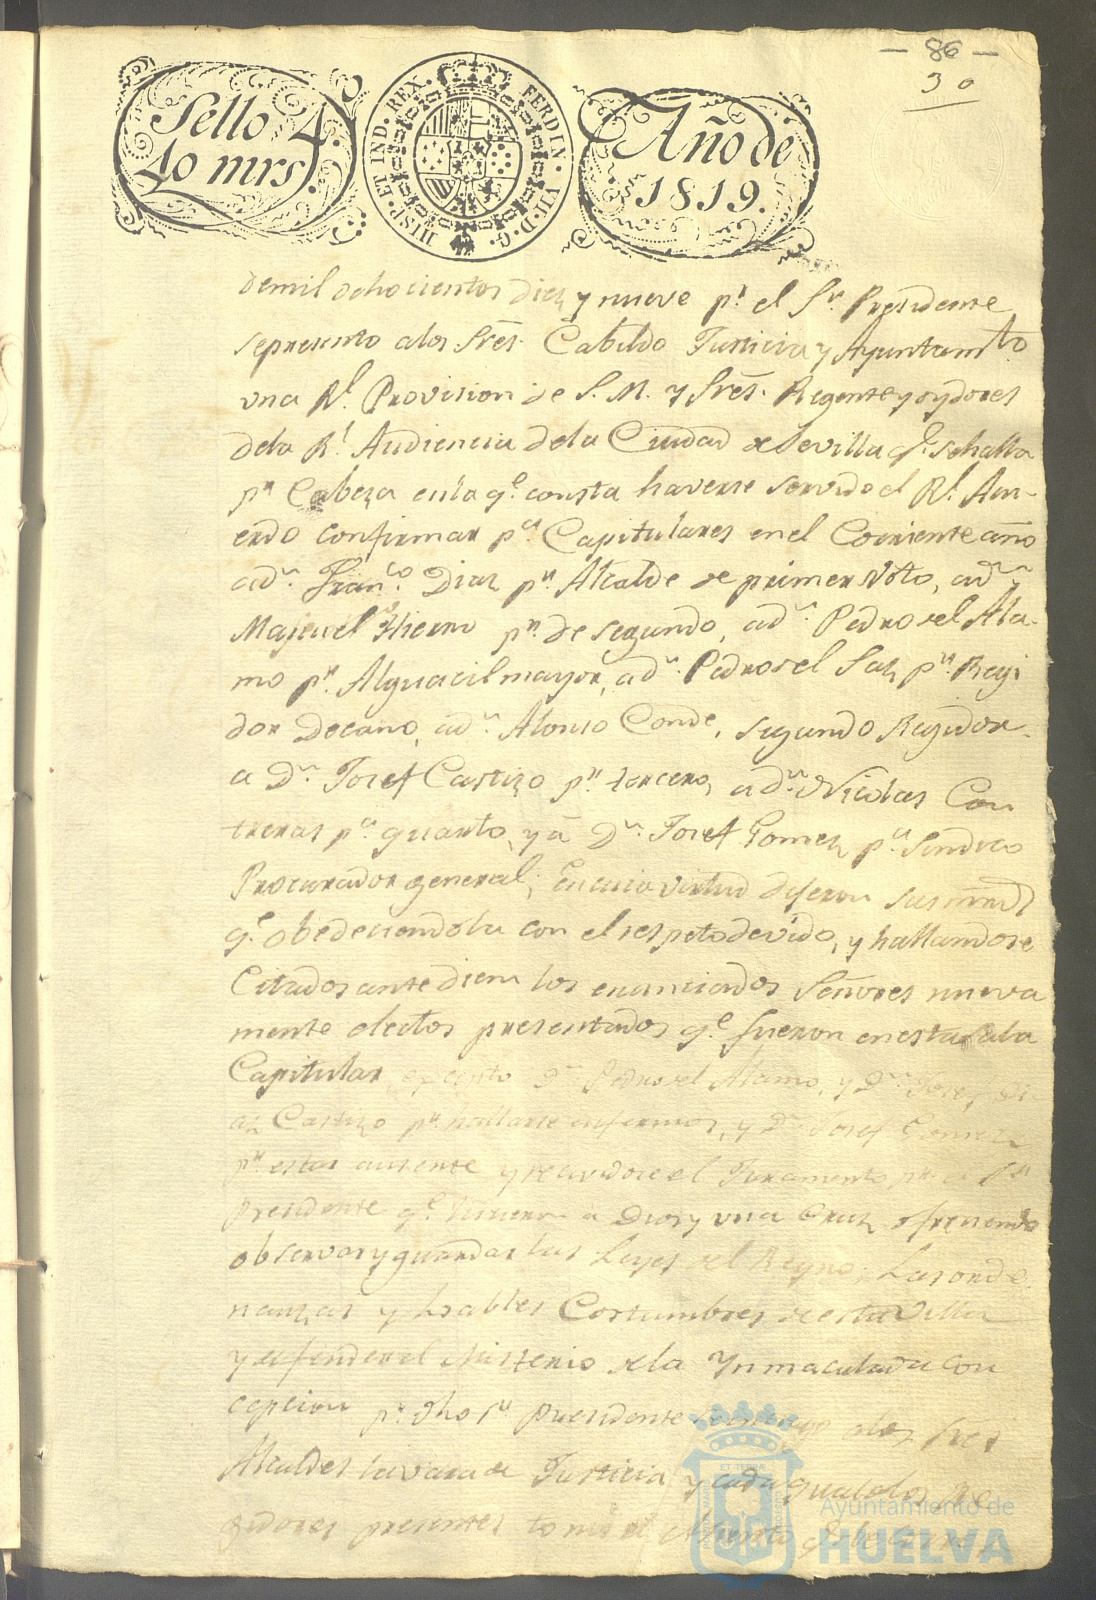 86
30
Sello 4º
40 mrs.
HISP. ET IND. REX. FERDIN. VII. D. G.
Año de
1819.
de mil ochocientos diez y nueve pr. el Sr. Presidente
se presento a los Sres. Cabildo Justicia y Ayuntamto
una Rl. Provision de S. M. y Sres. Regente y oydores
dela Rl. Audiencia dela Ciudad de Sevilla qe. se halla
pr Cabeza en la qe. consta haverse servido el Rl. Acu-
erdo confirmar pa. Capitulares en el Corriente año
a dn. Franco. Diaz pr. Alcalde de primer Voto, a dn
Manuel Hierro pr. de segundo, a dn. Pedro del Ala-
mo pr. Alguacil mayor, a dn. Pedro del Saz pr. Regi
dor Decano, a dn. Alonso Conde, segundo Regidor
a Dn. Josef Castizo pr. tercero, a dn. Nicolas Con
treras pa. quarto, y a Dn. Josef Gomez pa. Sindico
Procurador general; En cuia virtud dijeron sus mrds
qe. obedeciendola con el respeto devido, y hallandose
Citados ante diem los enunciados Señores nueva
mente electos presentados qe. fueron en esta Sala
Capitular, excepto Dn Pedro del Alamo, y Dn. Josef
Castizo pr. hallarse enfermos, y Dn. Josef Gomez
pr. estar ausente y recividose el Juramento pr. el Sr.
Presidente qe. hicieron a Dios y una Cruz ofreciendo
observar y guardar las Leyes del Reyno, Las orde
nanzas y loables Costumbres de esta Villa
y defender el Misterio de la Ynmaculada Con
cepcion pr. dho Sr Presidente se entrego a los Sres
Alcaldes la vara de Justicia y cada qual de los Re
gidores presentes tomó el Asiento qe.
Ayuntamiento de
HUELVA